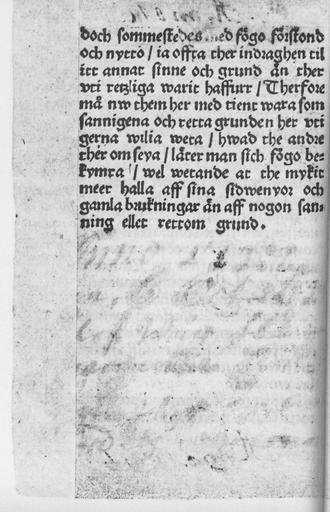 doch sommestedes med fögo förstond
och nytto / ia offta ther indraghen til
itt annat sinne och grund än ther
vti retzliga warit haffuer / Therfore
må nw them her med tient wara som
sannigena och retta grunden her vti
gerna wilia weta / hwad the andre
ther om seya / läter man sich fögo be-
kymra / wel wetande at the mykit
meer halla aff sina sidwenyor och
gamla brukningar än aff nogon san-
ning eller rettom grund.